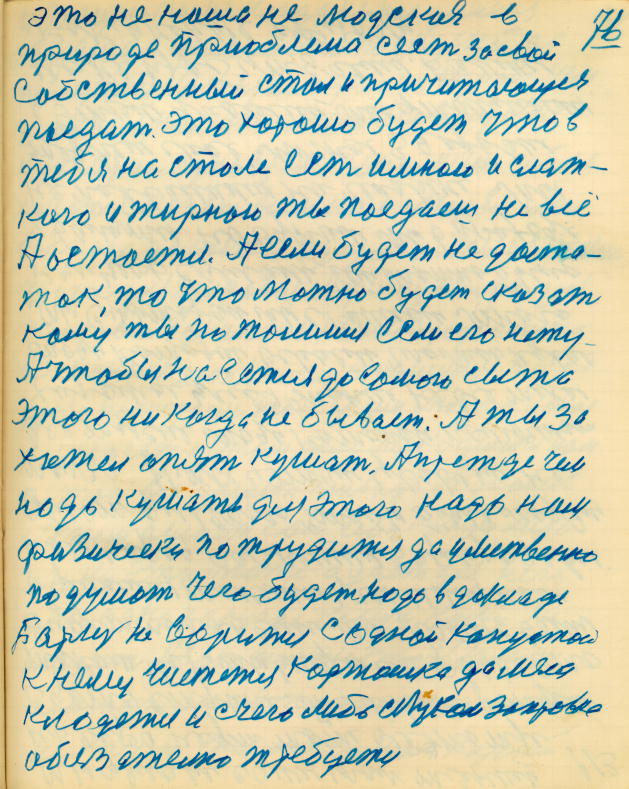 это не наша не людская в 76
природе Приоблема сест за свой
Собственный стол и причитающися
поедат. Это хорошо будет что в
тебя на столе Сест и много и слат-
кого и жирного ты поедаеш не всё
Достоется. А если будет не доста-
ток, то что можно будет сказат
кому ты по
А чтобы на сетися до самого сыта
Этого никогда не бывает. А ты за
хотел опят кушат. А прежде чем
надо кушать для этого надо нам
физически потрудится да умственно
подумат Чего будет надо в докладе
Барщ не варится Содной капустой
к нему чистется картошка да мяса
кладется и с чего либо заправка
обязателно требуется